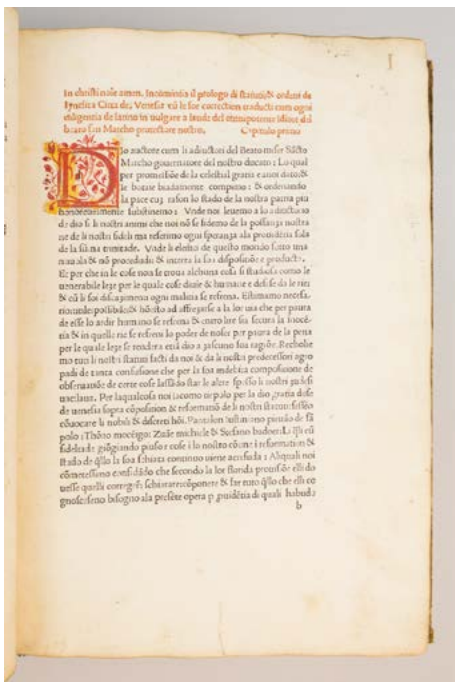 In christi nõie amen. Incomincia il prologo di statuti & ordeni de
lynclita Cita de, Venesia cũ le soe correction traducti cum ogni
diligencia de latino in vulgare a laude del omnipotente Idio et del
beato san Marcho protectore nostro. Capitulo primo
Dio auctore cum li adiuctori del Beato miser Sãcto
Marcho gouernatore del nostro ducato: Lo qual
per promissiõe de la celestial gratia e anni dato, &
le botaie biadamente compimo: & ordenando
la pace cum rason lo stado de la nostra patria
honoreuelmente substinemo: Vnde noi leuemo a lo adiuctorio
de dio si li nostri animi che noi nõ se fidemo de la possanza nostra
ne de li nostri fideli ma resetimo ogni speranza a la prouidẽtia sola
de la sãcta trinitade. Vnde li elecion de questo mondo sotto una
& nõ procedudi & intrera la soa dispositiõe e producti.
Et per che in le cose non se troua alchuna cosa si studiosa como le
uenerabile leze per le quale cose diuie & humane e defese da le rei
& cũ li soi ogni malicia se refrena. Estimamo necesa
rio utile possibile & hõesto ad affrezarse a la lor uia che per paura
de esse lo ardir humano se refrena & entro lire sia secura la inocẽ
tia & in quelle rie se refreni lo poder de noser per paura de la pena
per le quale leze se rendera etiã dio a zascuno sua ragiõe. Recholie
mo tuti li nostri statuti facti da noi & da li nostri predecessori agro
padi de tanta confusione che per la soa indebita composicione de
obseruatiõe de certe cose lassãdo star le altre spesso li nostri zudesi
uacilaua. Per laqualcosa noi iacomo tiepolo per la dio gratia dose
de uenesia sopra cõpositiõ & reformatiõ de li nostri statuti fessẽo
cõuocare li nobili & discreti hõi. Pantalon iustiniano piouão de sã
polo: Thõao mocẽigo: Zuãe michiele & Stefano badoer. Li q̃li cũ
fidelitade giõgiando piusor cose i lo nostro cõune i reformation &
stado de q̃llo la soa fchiata continuo uiene acresuda: Ali quali noi
cõmetessimo confidãdo che secondo la lor fionda prouisiõe elli do
uesse quelli correger: schiarare cõponere & far tuto q̃llo che elli co
gnoserseno bisogno ala presẽte opera p puidẽtia di quali habuda
b